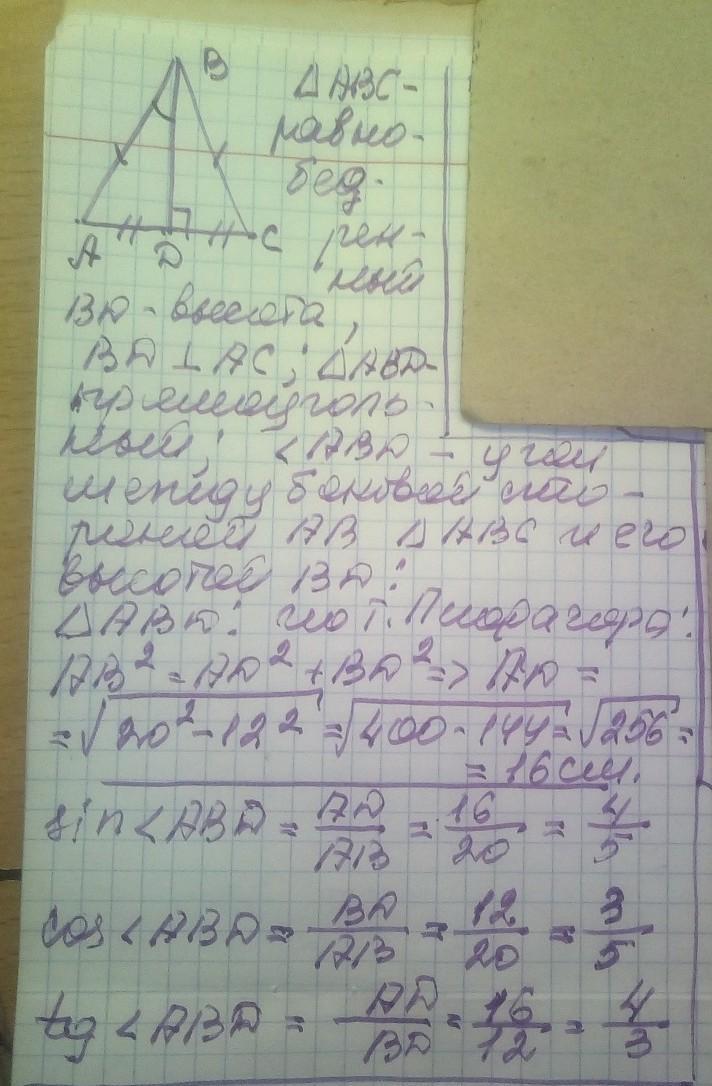 B
A D C
△ABC-
равно-
бед-
рен-
ный
BD - высота,
BD ⊥ AC; △ABD-
прямоуголь-
ный; <ABD - угол
между боковой сто-
роной AB △ABC и его
высотой BD:
△ABD: по т. Пифагора:
AB² = AD² + BD² => AD =
= √20² - 12² = √400 - 144 = √256 =
= 16 см.
sin <ABD = AD/AB = 16/20 = 4/5
cos <ABD = BD/AB = 12/20 = 3/5
tg <ABD = AD/BD = 16/12 = 4/3